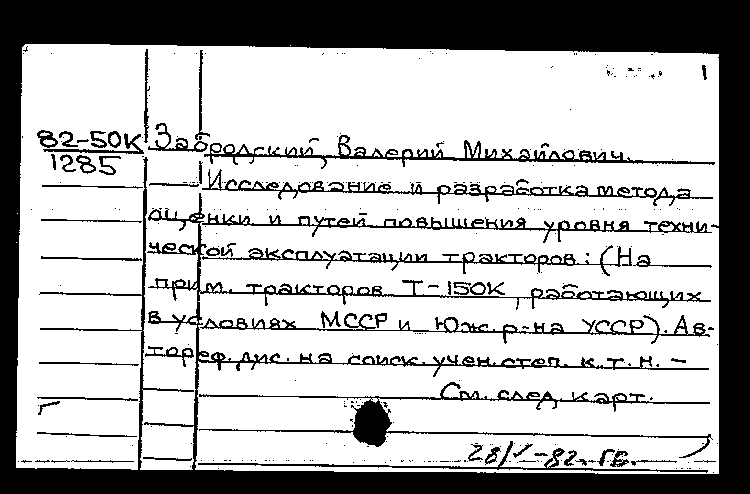 1
82-50К Забродский, Валерий Михайлович.
1285
Исследование и разработка метода
оценки и путей повышения уровня техни-
ческой эксплуатации тракторов: (На
прим. тракторов Т-150К, работающих
в условиях МССР и Юж. р-на УССР). Ав-
тореф. дис. на соиск. учен. степ. к.т.н. –
См. след. карт.
28/V-82.